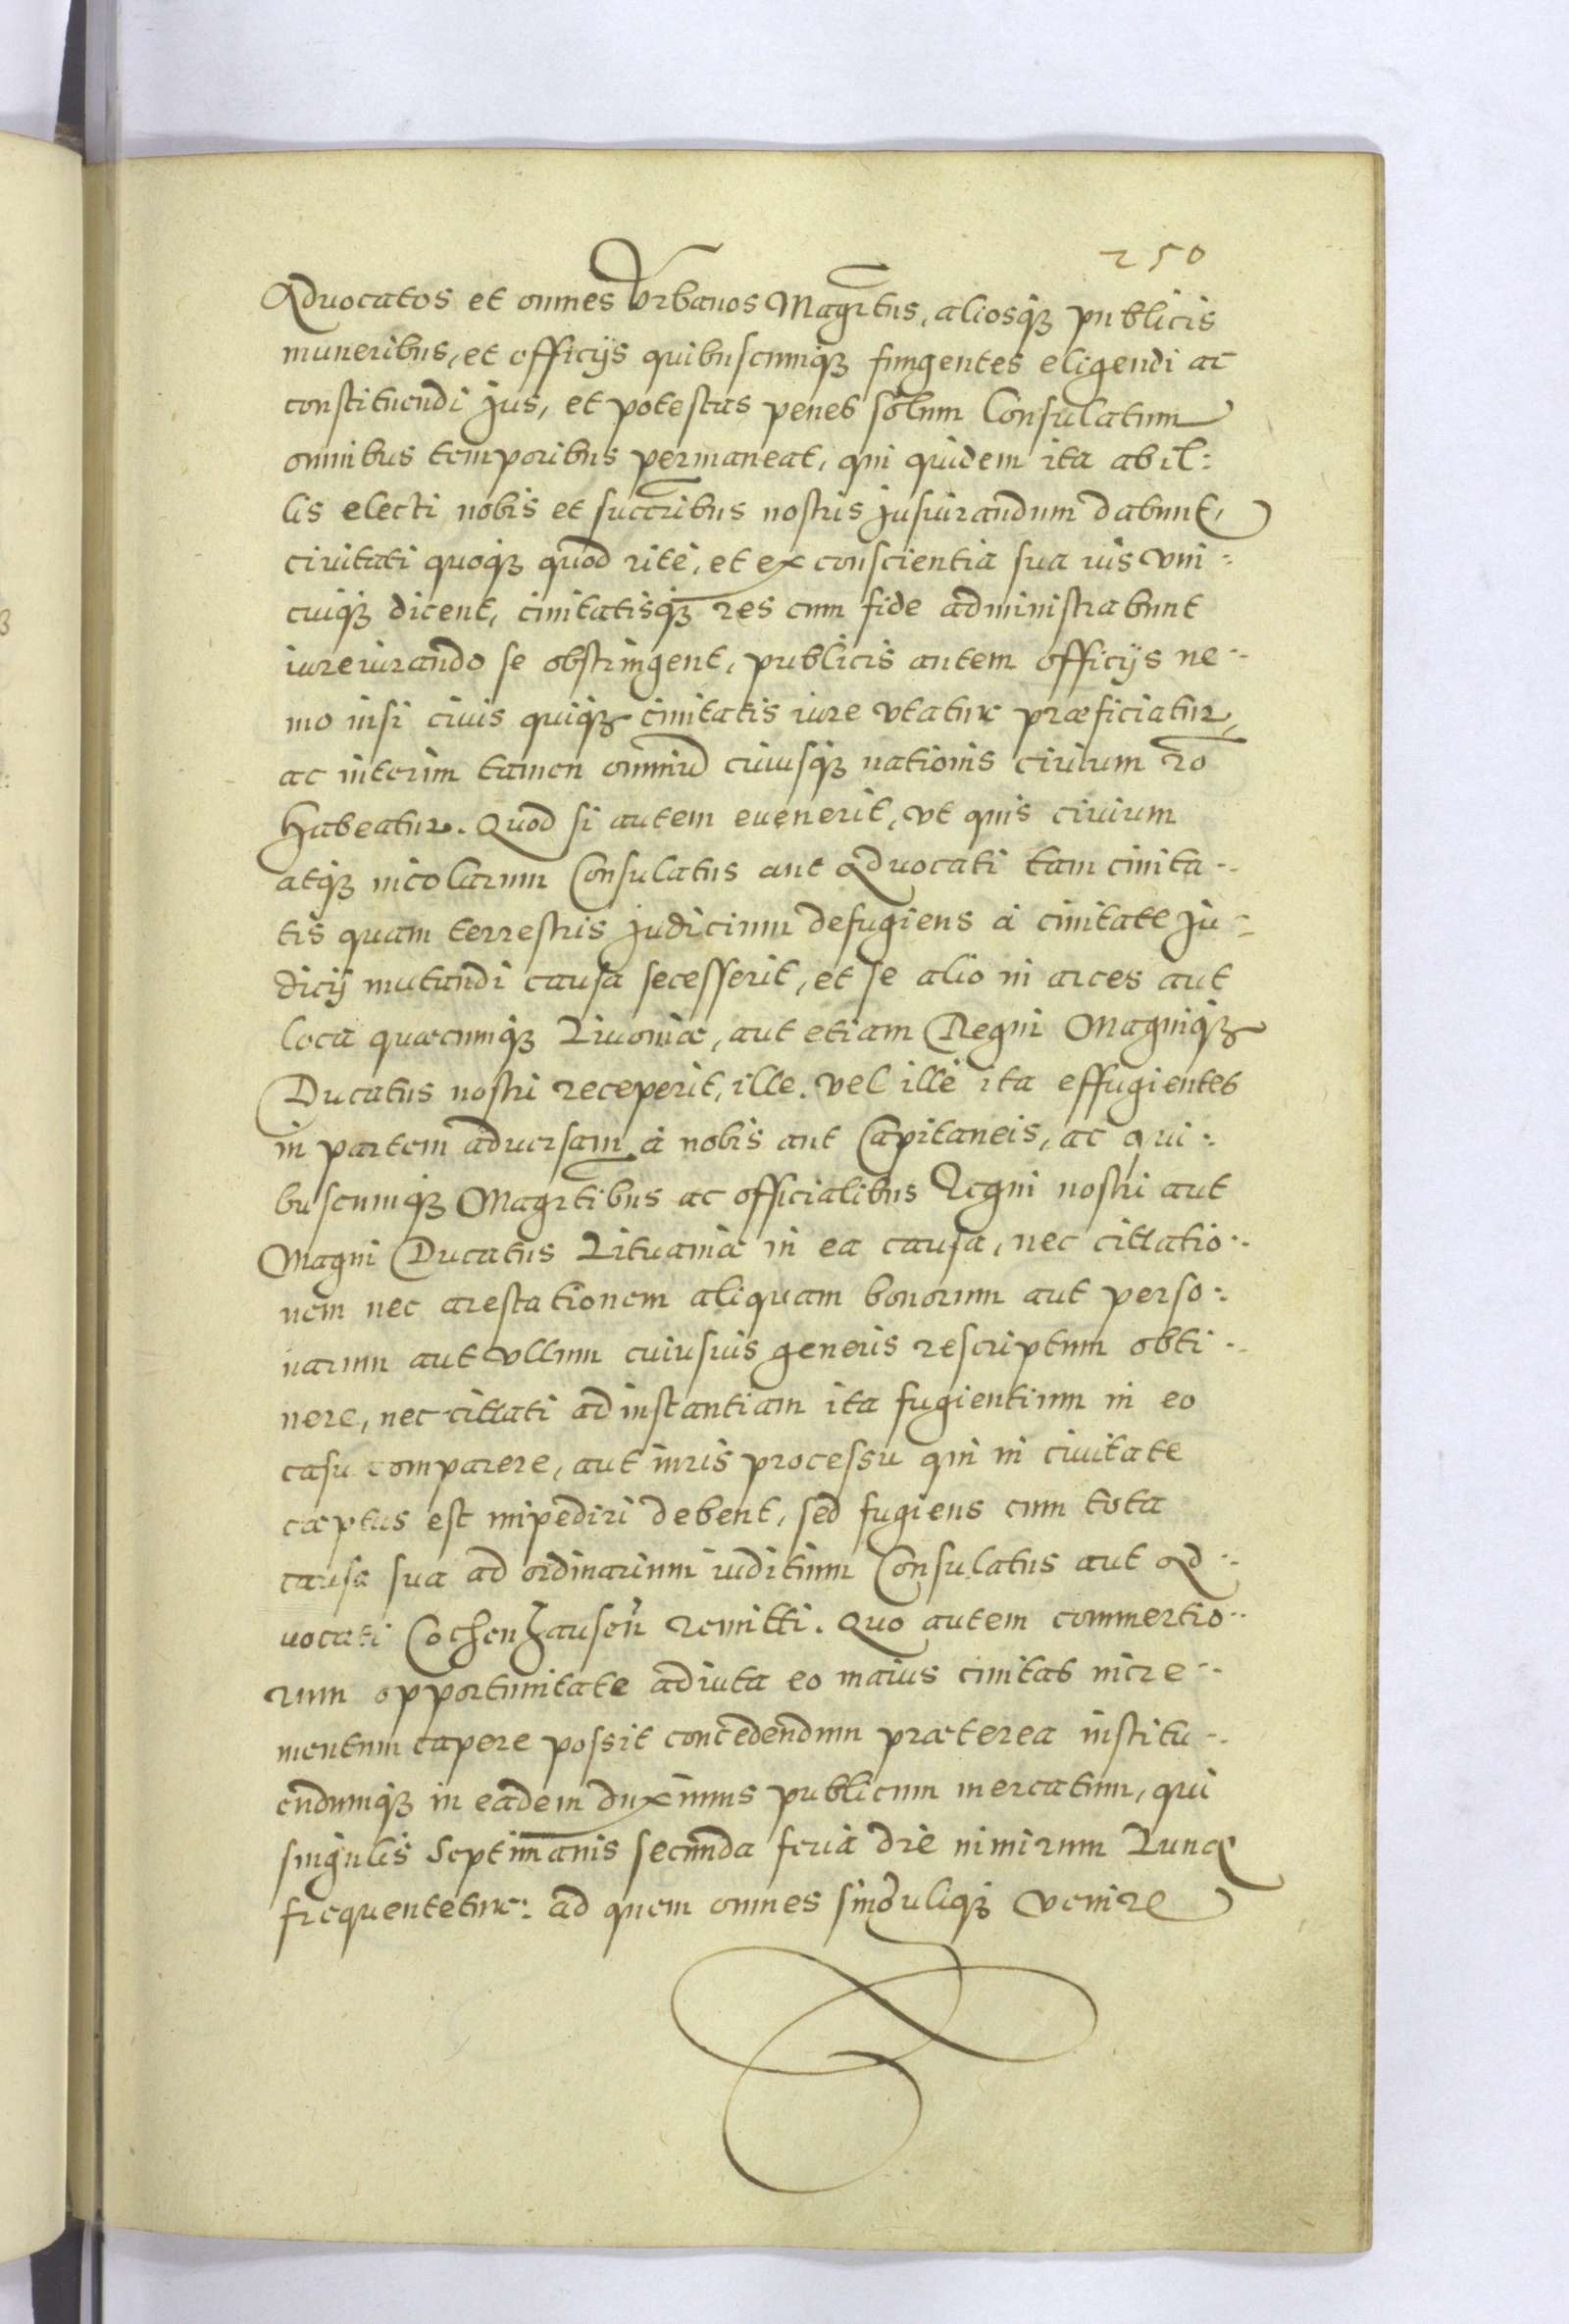 250
Aduocatos et omnes Vrbanos Magrtus, aliosqȝ publicis
muneribus, et officijs quibuscunqȝ fungentes eligendi ac
constituendi Jus, et potestas penes solum Consulatum
omnibus temporibus permaneat, qui quidem ita ab il:
lis electi nobis et succribus nostris Jusiurandum dabunt,
ciuitati quoqȝ quod ritè, et ex conscientia sua ius vni:
cuiqȝ dicent, ciuitatisqȝ res cum fide administrabunt
iureiurando se obstringent, publicis autem officijs ne:
mo nisi ciuis quiqȝ ciuitatis iure vtatur præficiatur,
ac interim tamen omniū cuiusqȝ nationis ciuium rō
habeatur. Quod si autem euenerit, vt quis ciuium
atqȝ incolarum Consulatus aut Aduocati tam ciuita:
tis quam terrestris Judicium defugiens à ciuitate Ju:
dicij mutandi causa secesserit, et se alio in arces aut
loca quæcunqȝ Liuoniæ, aut etiam Regni Magniqȝ
Ducatus nostri receperit, ille. vel illi ita effugientes
in partem aduersam à nobis aut Capitaneis, ac qui:
buscunqȝ Magrtibus ac officialibus Regni nostri aut
Magni Ducatus Lituaniæ in ea causa, nec cittatio:
nem nec arestationem aliquam bonorum aut perso:
narum aut vllum cuiusuis generis rescriptum obti:
nere, nec cittati ad instantiam ita fugientium in eo
casu comparere, aut iuris processu qui in ciuitate
cæptus est impediri debent, sed fugiens cum tota
causa sua ad ordinarium iuditium Consulatus aut Ad:
uocati Cochenhausen̄ remitti. Quo autem commertio:
rum opportunitate adiuta eo maius ciuitas incre:
mentum capere possit concedendum præterea institu:
endumqȝ in eadem duximus publicum mercatum, qui
singulis Septimanis secunda feria die nimirum Lunæ
frequentetur: ad quem omnes singuliqȝ venire